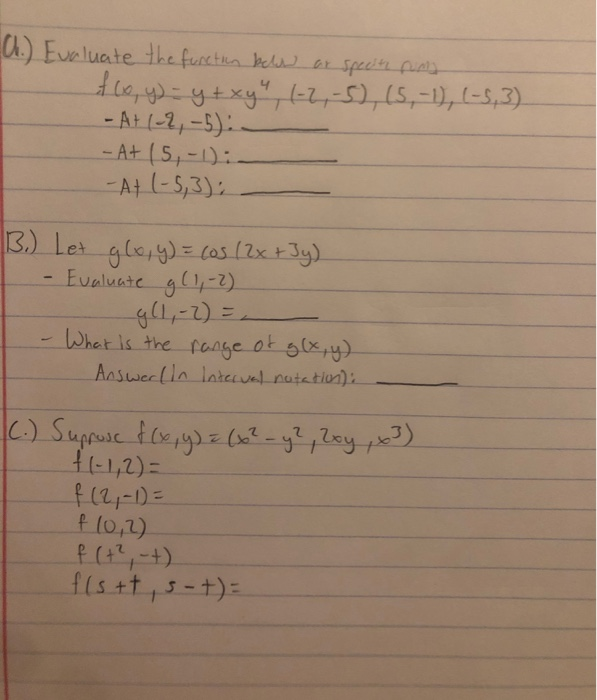 a.) Evaluate the function below at specific points
f(x,y) = y + xy⁴, (-2,-5), (5,-1), (-5,3)
-At (-2,-5): ______
-At (5,-1): ______
-At (-5,3): ______
B.) Let g(x,y) = cos(2x+3y)
- Evaluate g(1,-2)
g(1,-2) = ______
- What is the range of g(x,y)
Answer (In interval notation): ______
C.) Suppose f(x,y) = (x²-y², 2xy, x³)
f(-1,2) =
f(2,-1) =
f(0,2)
f(t²,-t)
f(s+t, s-t) =